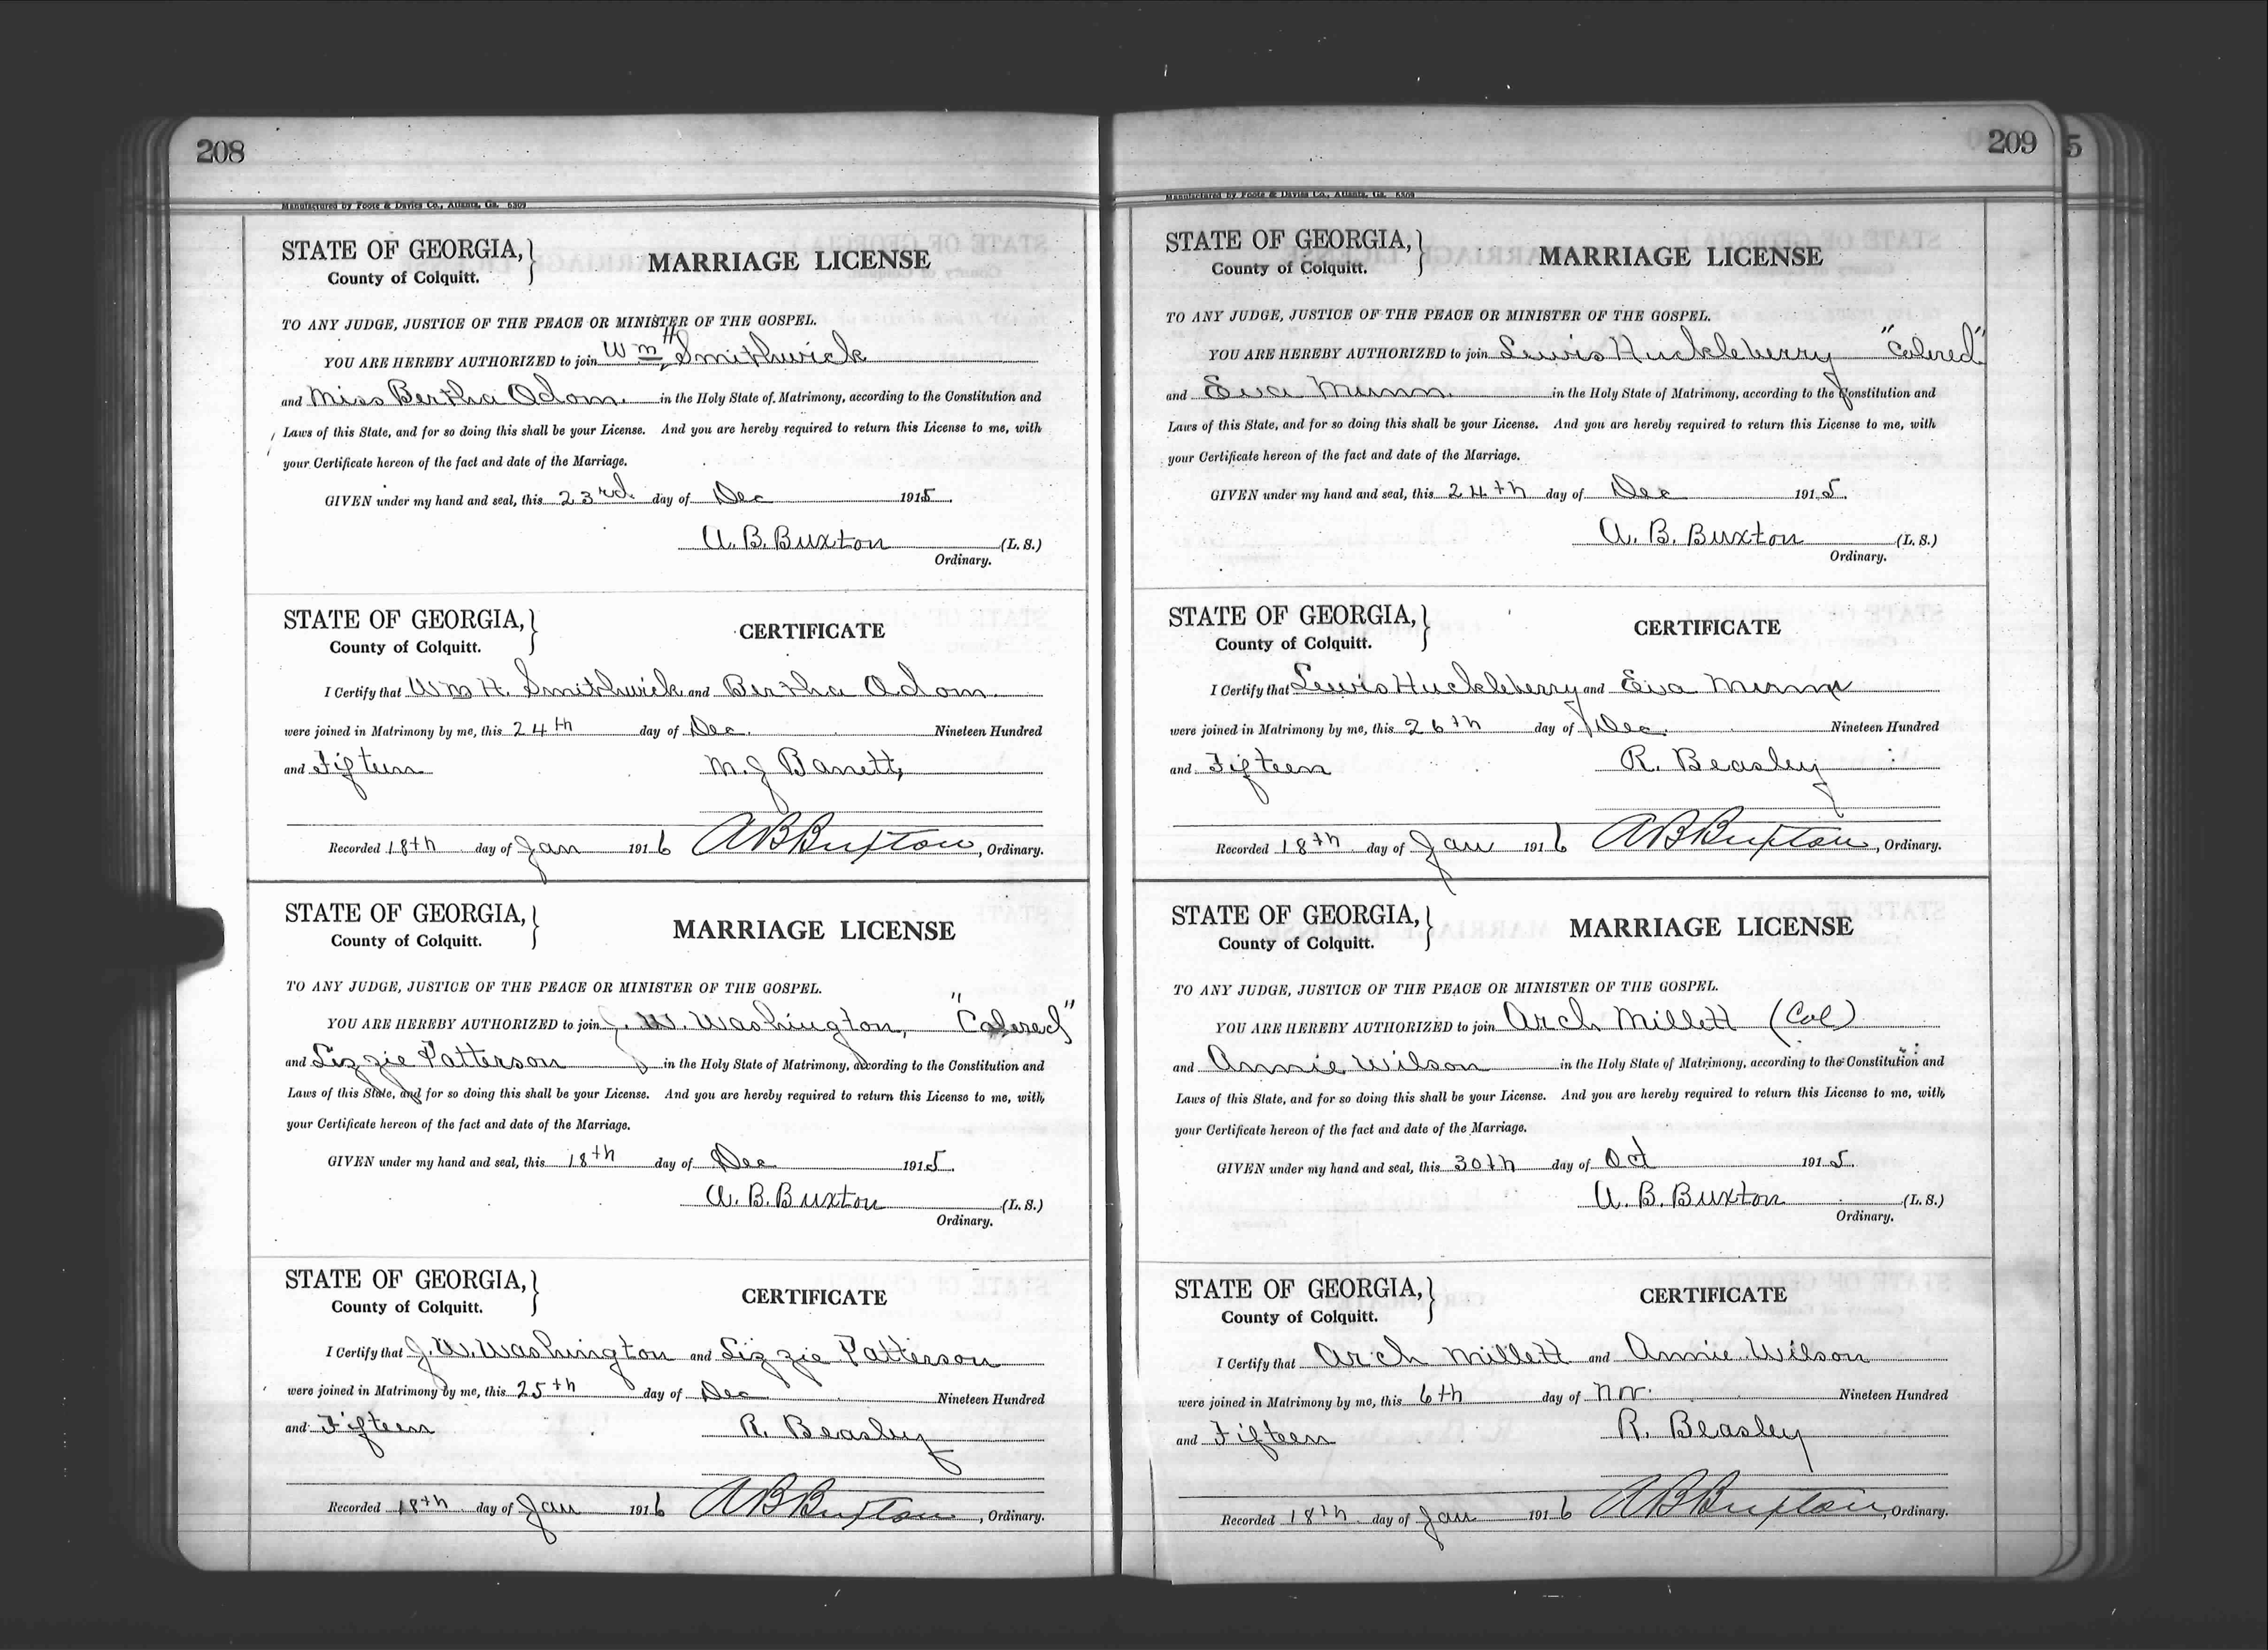 208
Manufactured by Foote & Davies Co., Atlanta, Ga. 5309
STATE OF GEORGIA,
County of Colquitt.
MARRIAGE LICENSE
TO ANY JUDGE, JUSTICE OF THE PEACE OR MINISTER OF THE GOSPEL.
YOU ARE HEREBY AUTHORIZED to join Wm H Smithwick
and Miss Bertha Odom. in the Holy State of Matrimony, according to the Constitution and
Laws of this State, and for so doing this shall be your License. And you are hereby required to return this License to me, with
your Certificate hereon of the fact and date of the Marriage.
GIVEN under my hand and seal, this 23rd day of Dec 1915.
A. B. Buxton (L. S.)
Ordinary.
STATE OF GEORGIA,
County of Colquitt.
CERTIFICATE
I Certify that Wm H. Smithwick and Bertha Odom.
were joined in Matrimony by me, this 24th day of Dec. Nineteen Hundred
and Fifteen M. J Barrett,
Recorded 18th day of Jan 1916 A B Buxton, Ordinary.
STATE OF GEORGIA,
County of Colquitt.
MARRIAGE LICENSE
TO ANY JUDGE, JUSTICE OF THE PEACE OR MINISTER OF THE GOSPEL.
YOU ARE HEREBY AUTHORIZED to join J. W. Washington, "Colored"
and Lizzie Patterson in the Holy State of Matrimony, according to the Constitution and
Laws of this State, and for so doing this shall be your License. And you are hereby required to return this License to me, with
your Certificate hereon of the fact and date of the Marriage.
GIVEN under my hand and seal, this 18th day of Dec 1915.
A. B. Buxton (L. S.)
Ordinary.
STATE OF GEORGIA,
County of Colquitt.
CERTIFICATE
I Certify that J. W. Washington and Lizzie Patterson
were joined in Matrimony by me, this 25th day of Dec Nineteen Hundred
and Fifteen R. Beasley
Recorded 18th day of Jan 1916 A B Buxton, Ordinary.
209
5
Manufactured by Foote & Davies Co., Atlanta, Ga. 5309
STATE OF GEORGIA,
County of Colquitt.
MARRIAGE LICENSE
TO ANY JUDGE, JUSTICE OF THE PEACE OR MINISTER OF THE GOSPEL.
YOU ARE HEREBY AUTHORIZED to join Lewis Huckleberry "Colored"
and Eva Munn. in the Holy State of Matrimony, according to the Constitution and
Laws of this State, and for so doing this shall be your License. And you are hereby required to return this License to me, with
your Certificate hereon of the fact and date of the Marriage.
GIVEN under my hand and seal, this 24th day of Dec 1915.
A. B. Buxton (L. S.)
Ordinary.
STATE OF GEORGIA,
County of Colquitt.
CERTIFICATE
I Certify that Lewis Huckleberry and Eva Munn
were joined in Matrimony by me, this 26th day of Dec. Nineteen Hundred
and Fifteen R. Beasley
Recorded 18th day of Jan 1916 A B Buxton, Ordinary.
STATE OF GEORGIA,
County of Colquitt.
MARRIAGE LICENSE
TO ANY JUDGE, JUSTICE OF THE PEACE OR MINISTER OF THE GOSPEL.
YOU ARE HEREBY AUTHORIZED to join Arch Millett (Col)
and Annie Wilson in the Holy State of Matrimony, according to the Constitution and
Laws of this State, and for so doing this shall be your License. And you are hereby required to return this License to me, with
your Certificate hereon of the fact and date of the Marriage.
GIVEN under my hand and seal, this 30th day of Oct 1915.
A. B. Buxton (L. S.)
Ordinary.
STATE OF GEORGIA,
County of Colquitt.
CERTIFICATE
I Certify that Arch Millett and Annie Wilson
were joined in Matrimony by me, this 6th day of Nov. Nineteen Hundred
and Fifteen R. Beasley
Recorded 18th day of Jan 1916 A B Buxton, Ordinary.